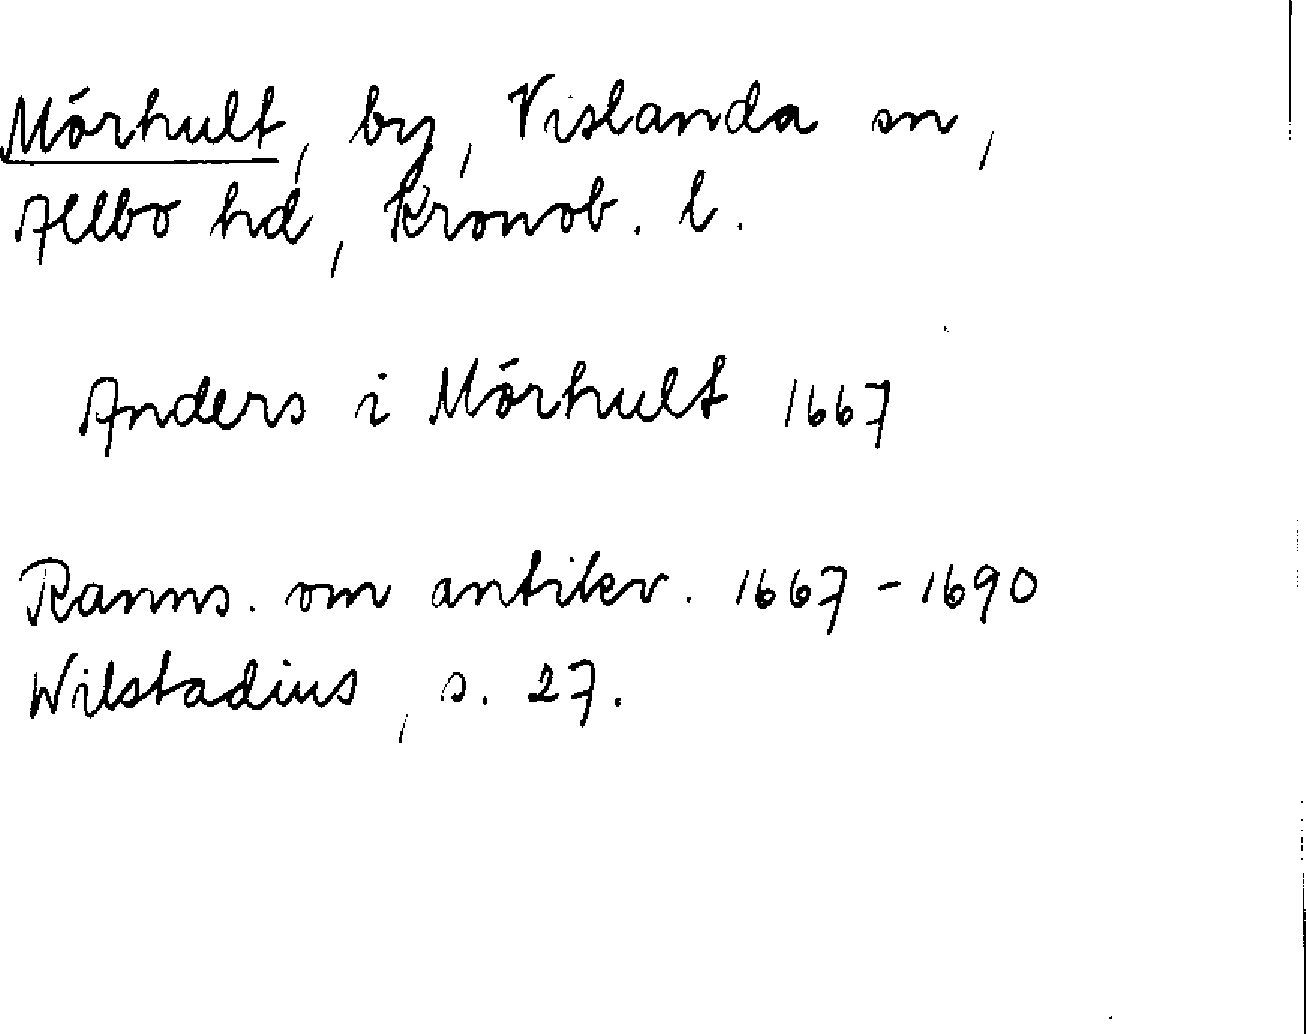 Mörhult, by, Vislanda sn,
Allbo hd, Kronob. l.
Anders i Mörhult 1667
Ranns. om antikv. 1667-1690
Wilstadius, s. 27.